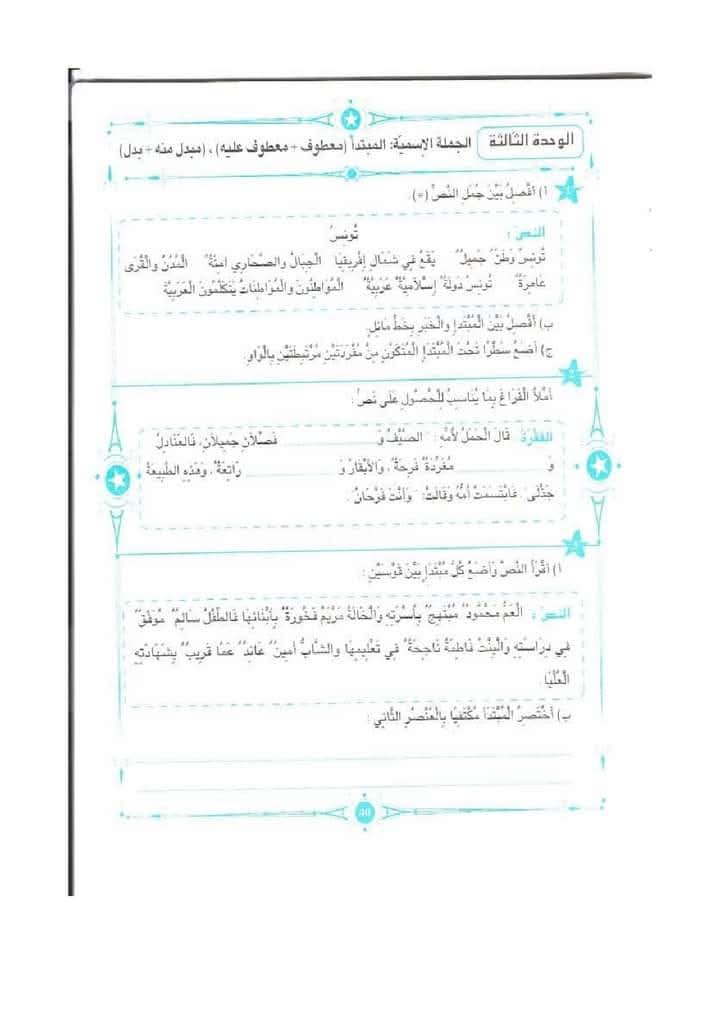 الوحدة الثالثة
الجملة الإسمية: المبتدأ (معطوف + معطوف عليه) ، (مبدل منه + بدل)
1
أ) أَفْصِلُ بَيْنَ جُمَلِ النَّصِّ (=).
النص :
تُونِسُ
تُونِسُ وَطَنٌ جَمِيلٌ يَقَعُ فِي شَمَالِ إِفْرِيقِيَا الْجِبَالُ والصَّحَارِي امِنَةٌ الْمُدُنُ والْقُرَى
عَامِرَةٌ تُونِسُ دَوْلَةٌ إِسْلَامِيَّةٌ عَرَبِيَّةٌ الْمُوَاطِنُونَ والْمُوَاطِنَاتُ يَتَكَلَّمُونَ الْعَرَبِيَّةَ
ب) أَفْصِلُ بَيْنَ الْمُبْتَدَإِ والْخَبَرِ بِخَطٍّ مَائِلٍ.
ج) أَضَعُ سَطْرًا تَحْتَ الْمُبْتَدَإِ الْمُتَكَوِّنِ مِنْ مُفْرَدَتَيْنِ مُرْتَبِطَتَيْنِ بِالْوَاوِ.
أَمْلَأُ الْفَرَاغَ بِمَا يُنَاسِبُ لِلْحُصُولِ عَلَى نَصٍّ :
الفقرة قَالَ الْحَمَلُ لِأُمِّهِ : الصَّيْفُ وَ فَصْلَانِ جَمِيلَانِ، فَالْعَنَادِلُ
وَ مُغَرِّدَةٌ فَرِحَةٌ، وَالْأَبْقَارُ وَ رَاتِعَةٌ، وَهَذِهِ الطَّبِيعَةُ
جَذْلَى. فَابْتَسَمَتْ أُمُّهُ وَقَالَتْ: وَأَنْتَ فَرْحَانٌ.
أ) أَقْرَأُ النَّصَّ وَأَضَعُ كُلَّ مُبْتَدَإٍ بَيْنَ قَوْسَيْنِ :
النص : الْعَمُّ مَحْمُودٌ مُبْتَهِجٌ بِأُسْرَتِهِ وَالْخَالَةُ مَرْيَمُ فَخُورَةٌ بِأَبْنَائِهَا فَالطِّفْلُ سَالِمٌ مُوَفَّقٌ
فِي دِرَاسَتِهِ وَالْبِنْتُ فَاطِمَةُ نَاجِحَةٌ فِي تَعْلِيمِهَا والشَّابُّ أَمِينٌ عَائِدٌ عَمَّا قَرِيبٌ بِشَهَادَتِهِ
الْعُلْيَا.
ب) أَخْتَصِرُ الْمُبْتَدَأَ مُكْتَفِيًا بِالْعُنْصُرِ الثَّانِي :
40